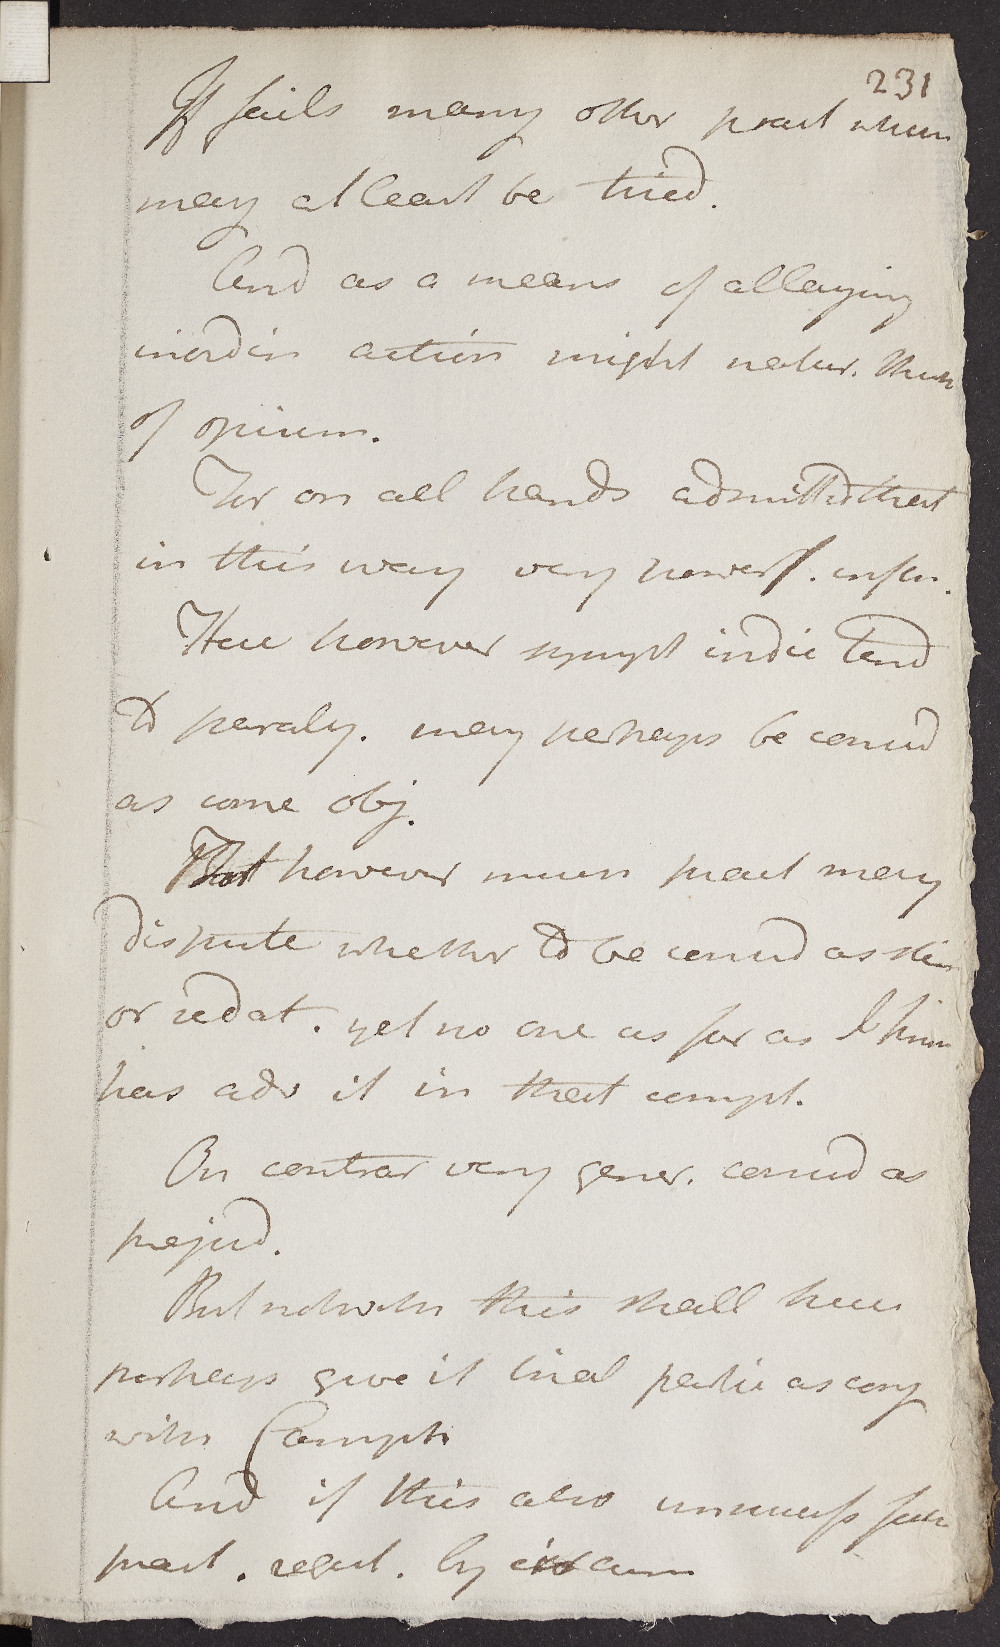 231
If fails many other pract when
may at least be tried.
And as a means of allaying
inordin action might natur. think
of opium.
For on all hands admitted that
in this way very powerf. influ.
Here however sympt indic tend
to paraly. may perhaps be consid
as some obj.
But however much pract may
dispute whether to be consid as stim
or sedat. yet no one as far as I know
has adv it in that compt.
On contrar very gener. consid as
prejud.
But notwith this shall here
perhaps give it trial partic as conj
with Camph
And if this also unsuccessf fut
pract. regul. by circum